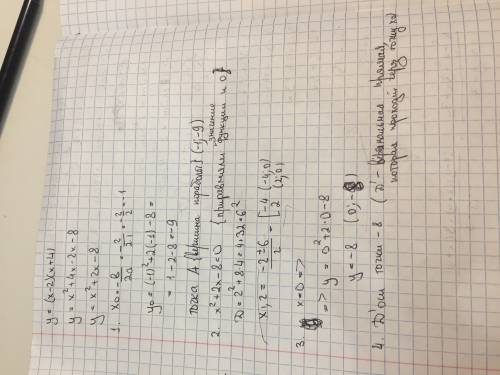 y = (x-2)(x+4)
y = x²+4x-2x-8
y = x²+2x-8
1. x₀ = -b/2a = -2/2·1 = -2/2 = -1
y₀ = (-1)²+2(-1)-8 =
= 1-2-8 = -9
точка A {вершина параболы} (-1;-9)
2. x²+2x-8=0 {приравняли значение функции к 0}
D = 2²+8·4 = 4+32 = 6²
x₁,₂ = -2±6/2 = [-4 (-4;0)
2 (2;0)
3. x=0 =>
=> y = 0²+2·0-8
y = -8 (0;-8)
4. D' оси точки -8 (D' - прямая,
которая проходит через точку